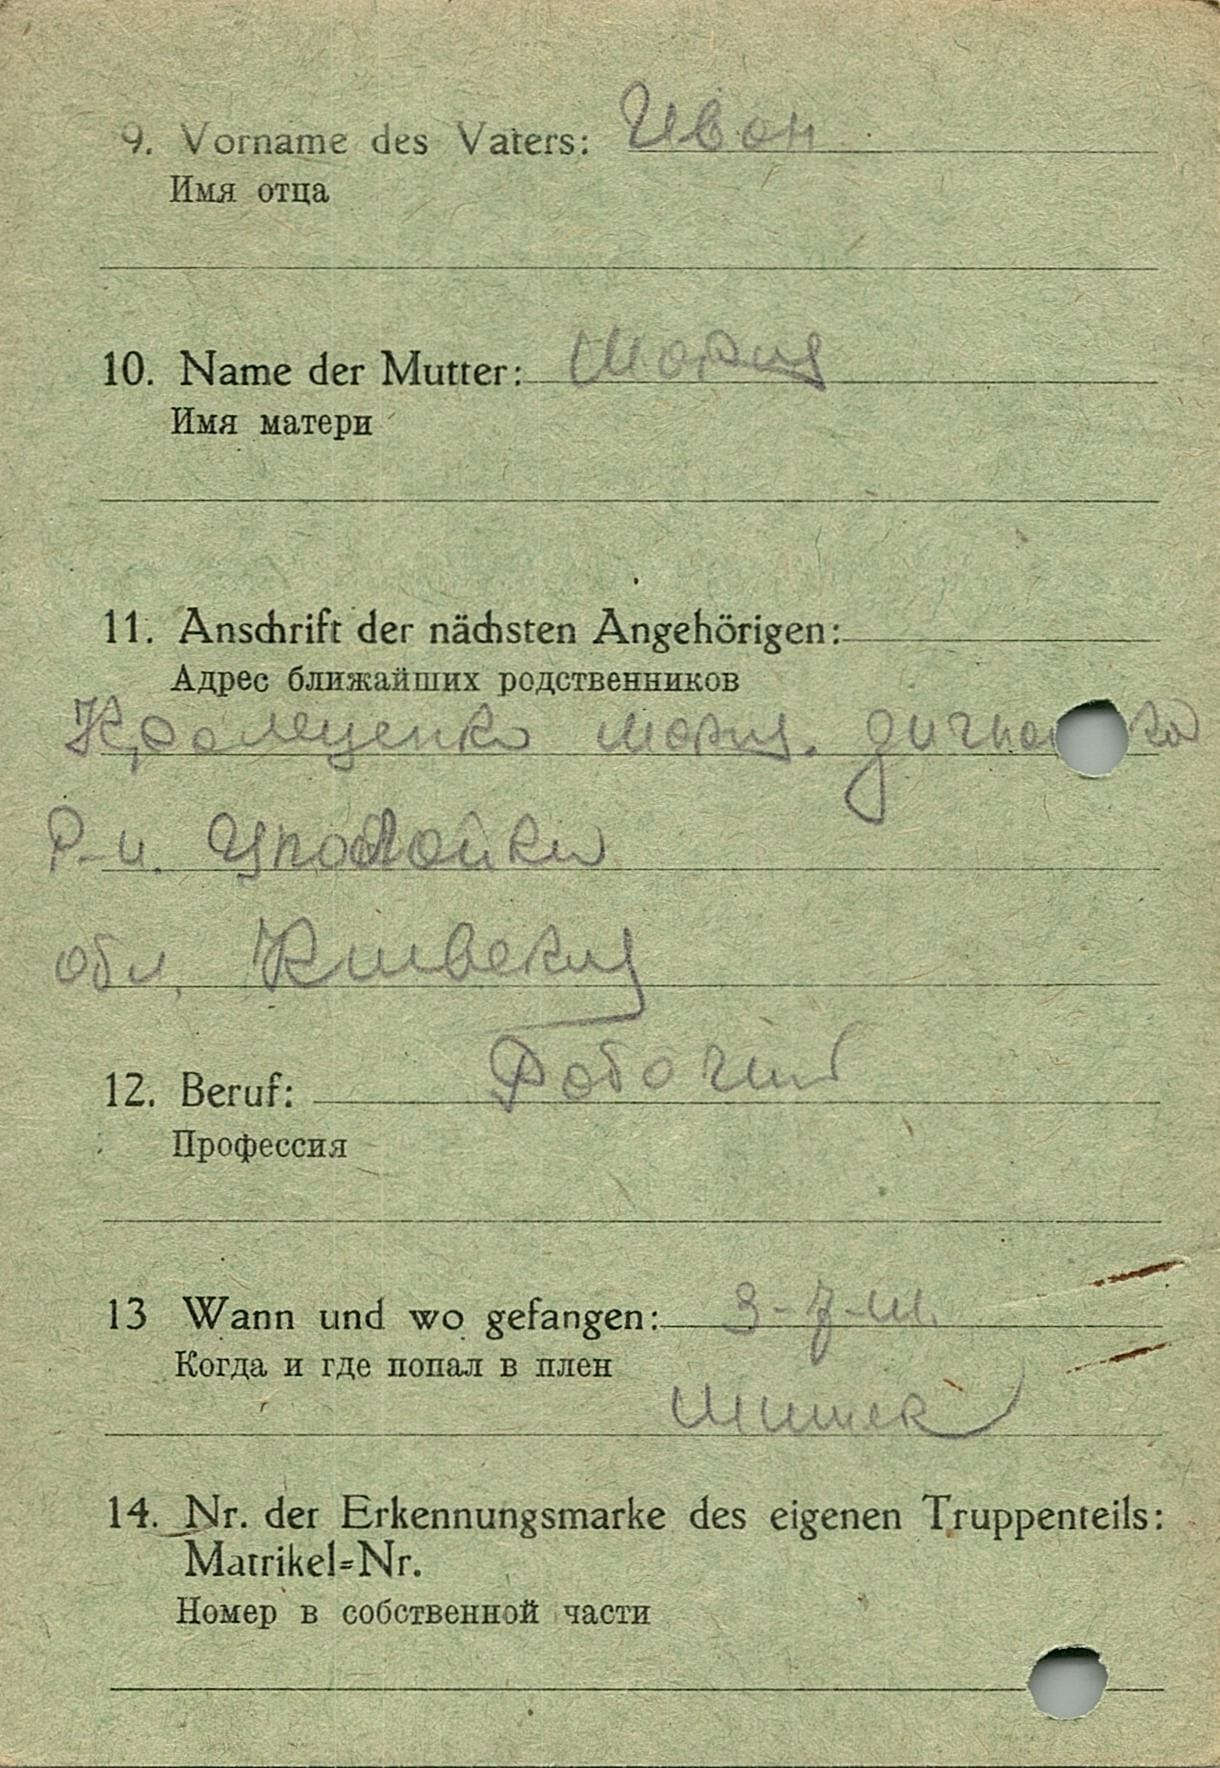 9. Vorname des Vaters: Ивон
Имя отца
10. Name der Mutter: Мория
Имя матери
11. Anschrift der nächsten Angehörigen:
Адрес ближайших родственников
мория.
Р-н.
обл. Киивския
12. Beruf: Роботий
Профессия
13 Wann und wo gefangen: 3-7-41.
Когда и где попал в плен
Минск
14. Nr. der Erkennungsmarke des eigenen Truppenteils:
Matrikel=Nr.
Номер в собственной части